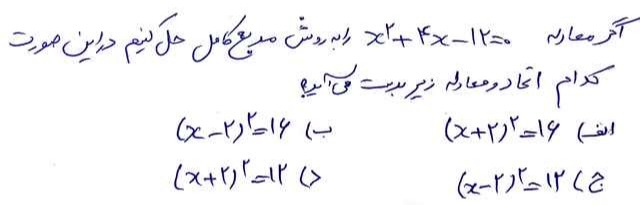 اگر معادله x²+۴x-۱۲=۰ را به روش مربع کامل حل کنیم در این صورت
کدام اتحاد و معادله زیر بدست می‌آید؟
الف) (x+۲)²=۱۶ ب) (x-۲)²=۱۶
ج) (x-۲)²=۱۲ د) (x+۲)²=۱۲